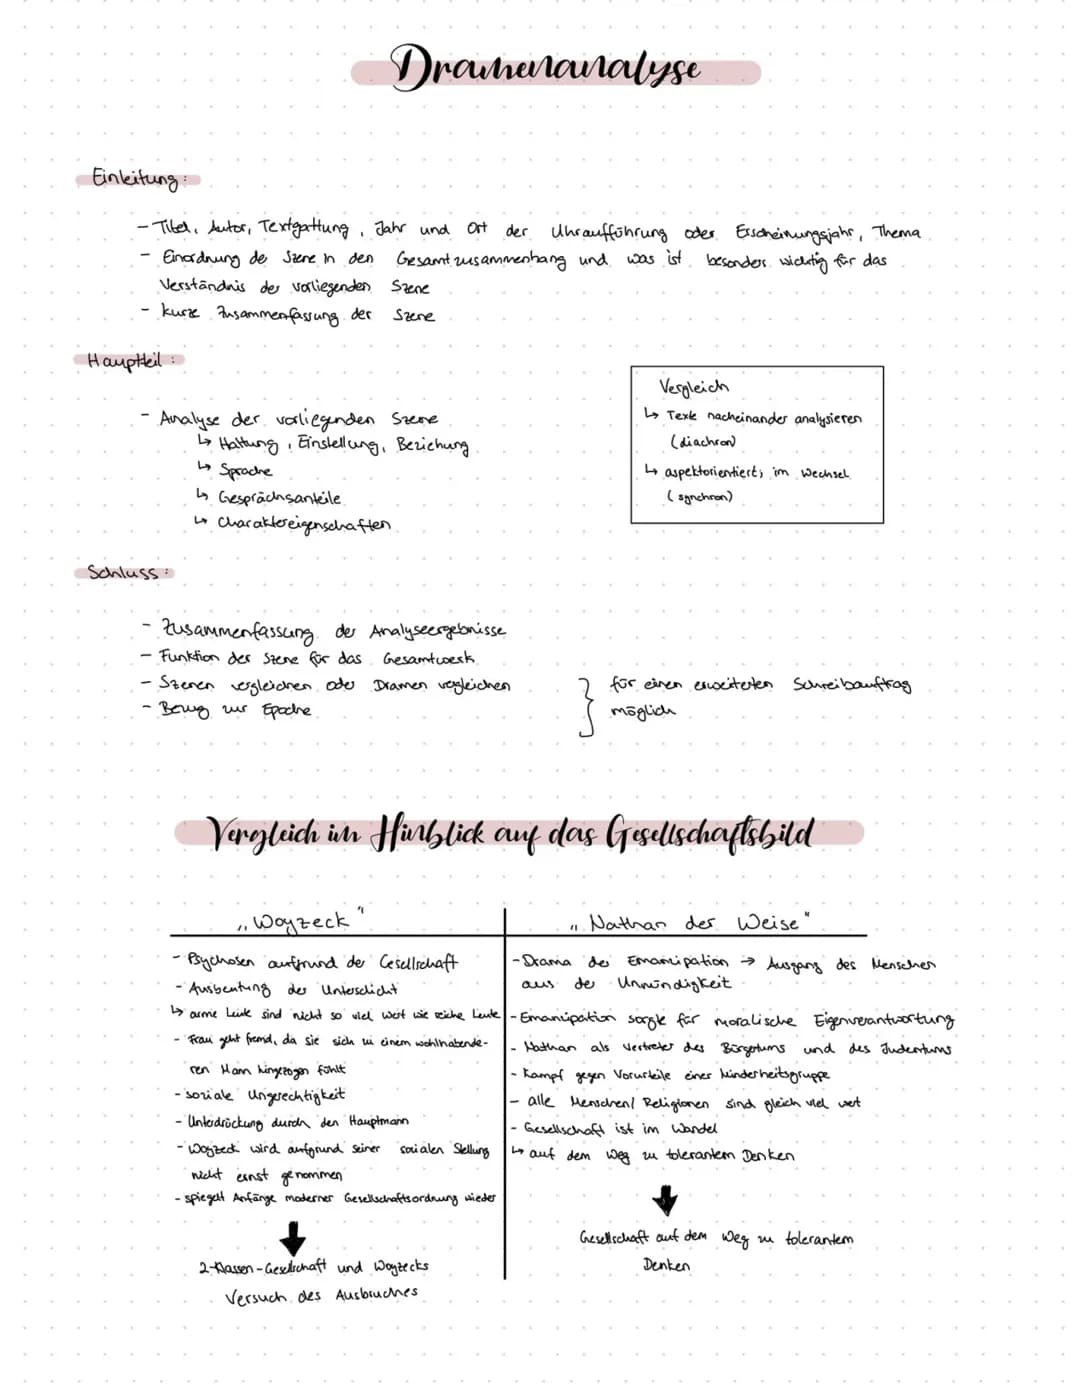 Dramenanalyse
Einleitung:
- Titel, Autor, Textgattung, Jahr und Ort der Uhraufführung oder Erscheinungsjahr, Thema
- Einordnung der Szene in den Gesamtzusammenhang und was ist besonders wichtig für das
Verständnis der vorliegenden Szene
- kurze Zusammenfassung der Szene
Hauptteil:
- Analyse der vorliegenden Szene
↳ Haltung, Einstellung, Beziehung
↳ Sprache
↳ Gesprächsanteile
↳ Charaktereigenschaften
Vergleich
↳ Texte nacheinander analysieren
(diachron)
↳ aspektorientiert; im Wechsel
(synchron)
Schluss:
- Zusammenfassung der Analyseergebnisse
- Funktion der Szene für das Gesamtwerk
- Szenen vergleichen oder Dramen vergleichen
- Bezug zur Epoche
} für einen erweiterten Schreibauftrag
möglich
Vergleich im Hinblick auf das Gesellschaftsbild
„Woyzeck"
- Psychosen aufgrund der Gesellschaft
- Ausbeutung der Unterschicht
↳ arme Leute sind nicht so viel wert wie reiche Leute
- Frau geht fremd, da sie sich zu einem wohlhabende-
ren Mann hingezogen fühlt
- soziale Ungerechtigkeit
- Unterdrückung durch den Hauptmann
- Woyzeck wird aufgrund seiner sozialen Stellung
nicht ernst genommen
- spiegelt Anfänge moderner Gesellschaftsordnung wieder
2-Klassen-Gesellschaft und Woyzecks
Versuch des Ausbruches
„Nathan der Weise"
- Drama der Emanzipation → Ausgang des Menschen
aus der Unmündigkeit
- Emanzipation sorgte für moralische Eigenverantwortung
- Nathan als Vertreter des Bürgertums und des Judentums
- Kampf gegen Vorurteile einer Minderheitsgruppe
- alle Menschen/Religionen sind gleich viel wert
- Gesellschaft ist im Wandel
↳ auf dem Weg zu tolerantem Denken
Gesellschaft auf dem Weg zu tolerantem
Denken